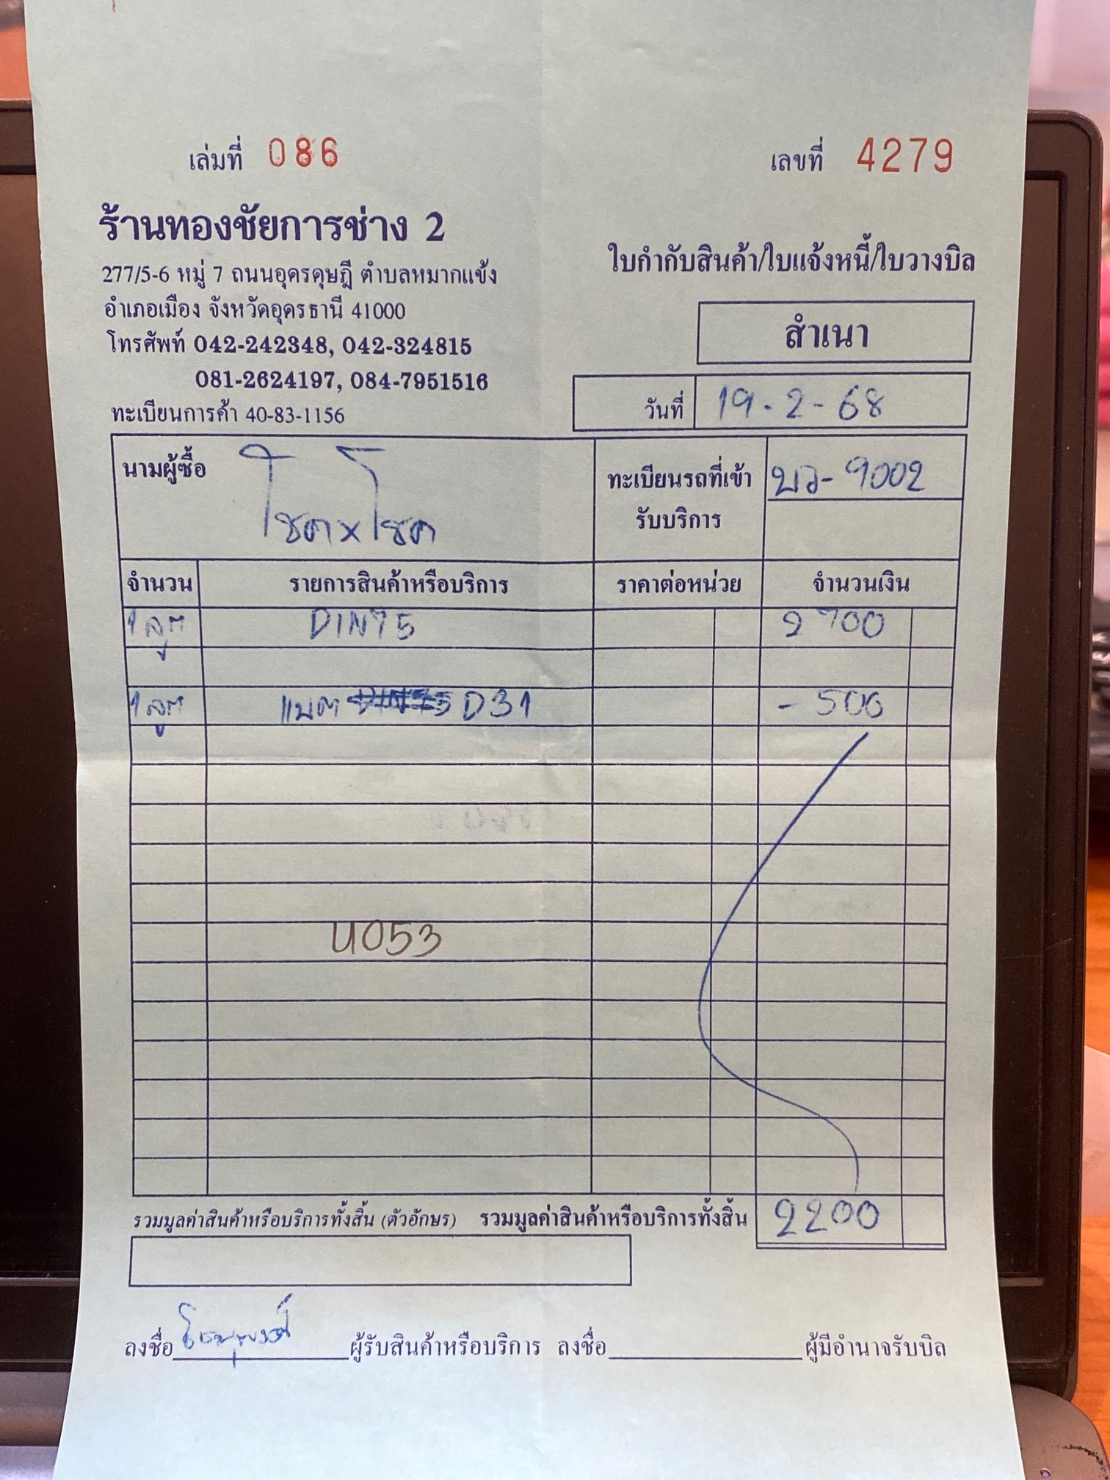 เล่มที่ 086
เลขที่ 4279
ร้านทองชัยการช่าง 2
277/5-6 หมู่ 7 ถนนอุดรดุษฎี ตำบลหมากแข้ง
อำเภอเมือง จังหวัดอุดรธานี 41000
โทรศัพท์ 042-242348, 042-324815
081-2624197, 084-7951516
ทะเบียนการค้า 40-83-1156
ใบกำกับสินค้า/ใบแจ้งหนี้/ใบวางบิล
สำเนา
วันที่ 19-2-68
นามผู้ซื้อ โชคxโชค
ทะเบียนรถที่เข้ารับบริการ บว-9002
จำนวน รายการสินค้าหรือบริการ ราคาต่อหน่วย จำนวนเงิน
1 ลูก DIN75 2700
1 ลูก แบต D31 -500
U053
รวมมูลค่าสินค้าหรือบริการทั้งสิ้น (ตัวอักษร) รวมมูลค่าสินค้าหรือบริการทั้งสิ้น 2200
ลงชื่อ ผู้รับสินค้าหรือบริการ ลงชื่อ ผู้มีอำนาจรับบิล